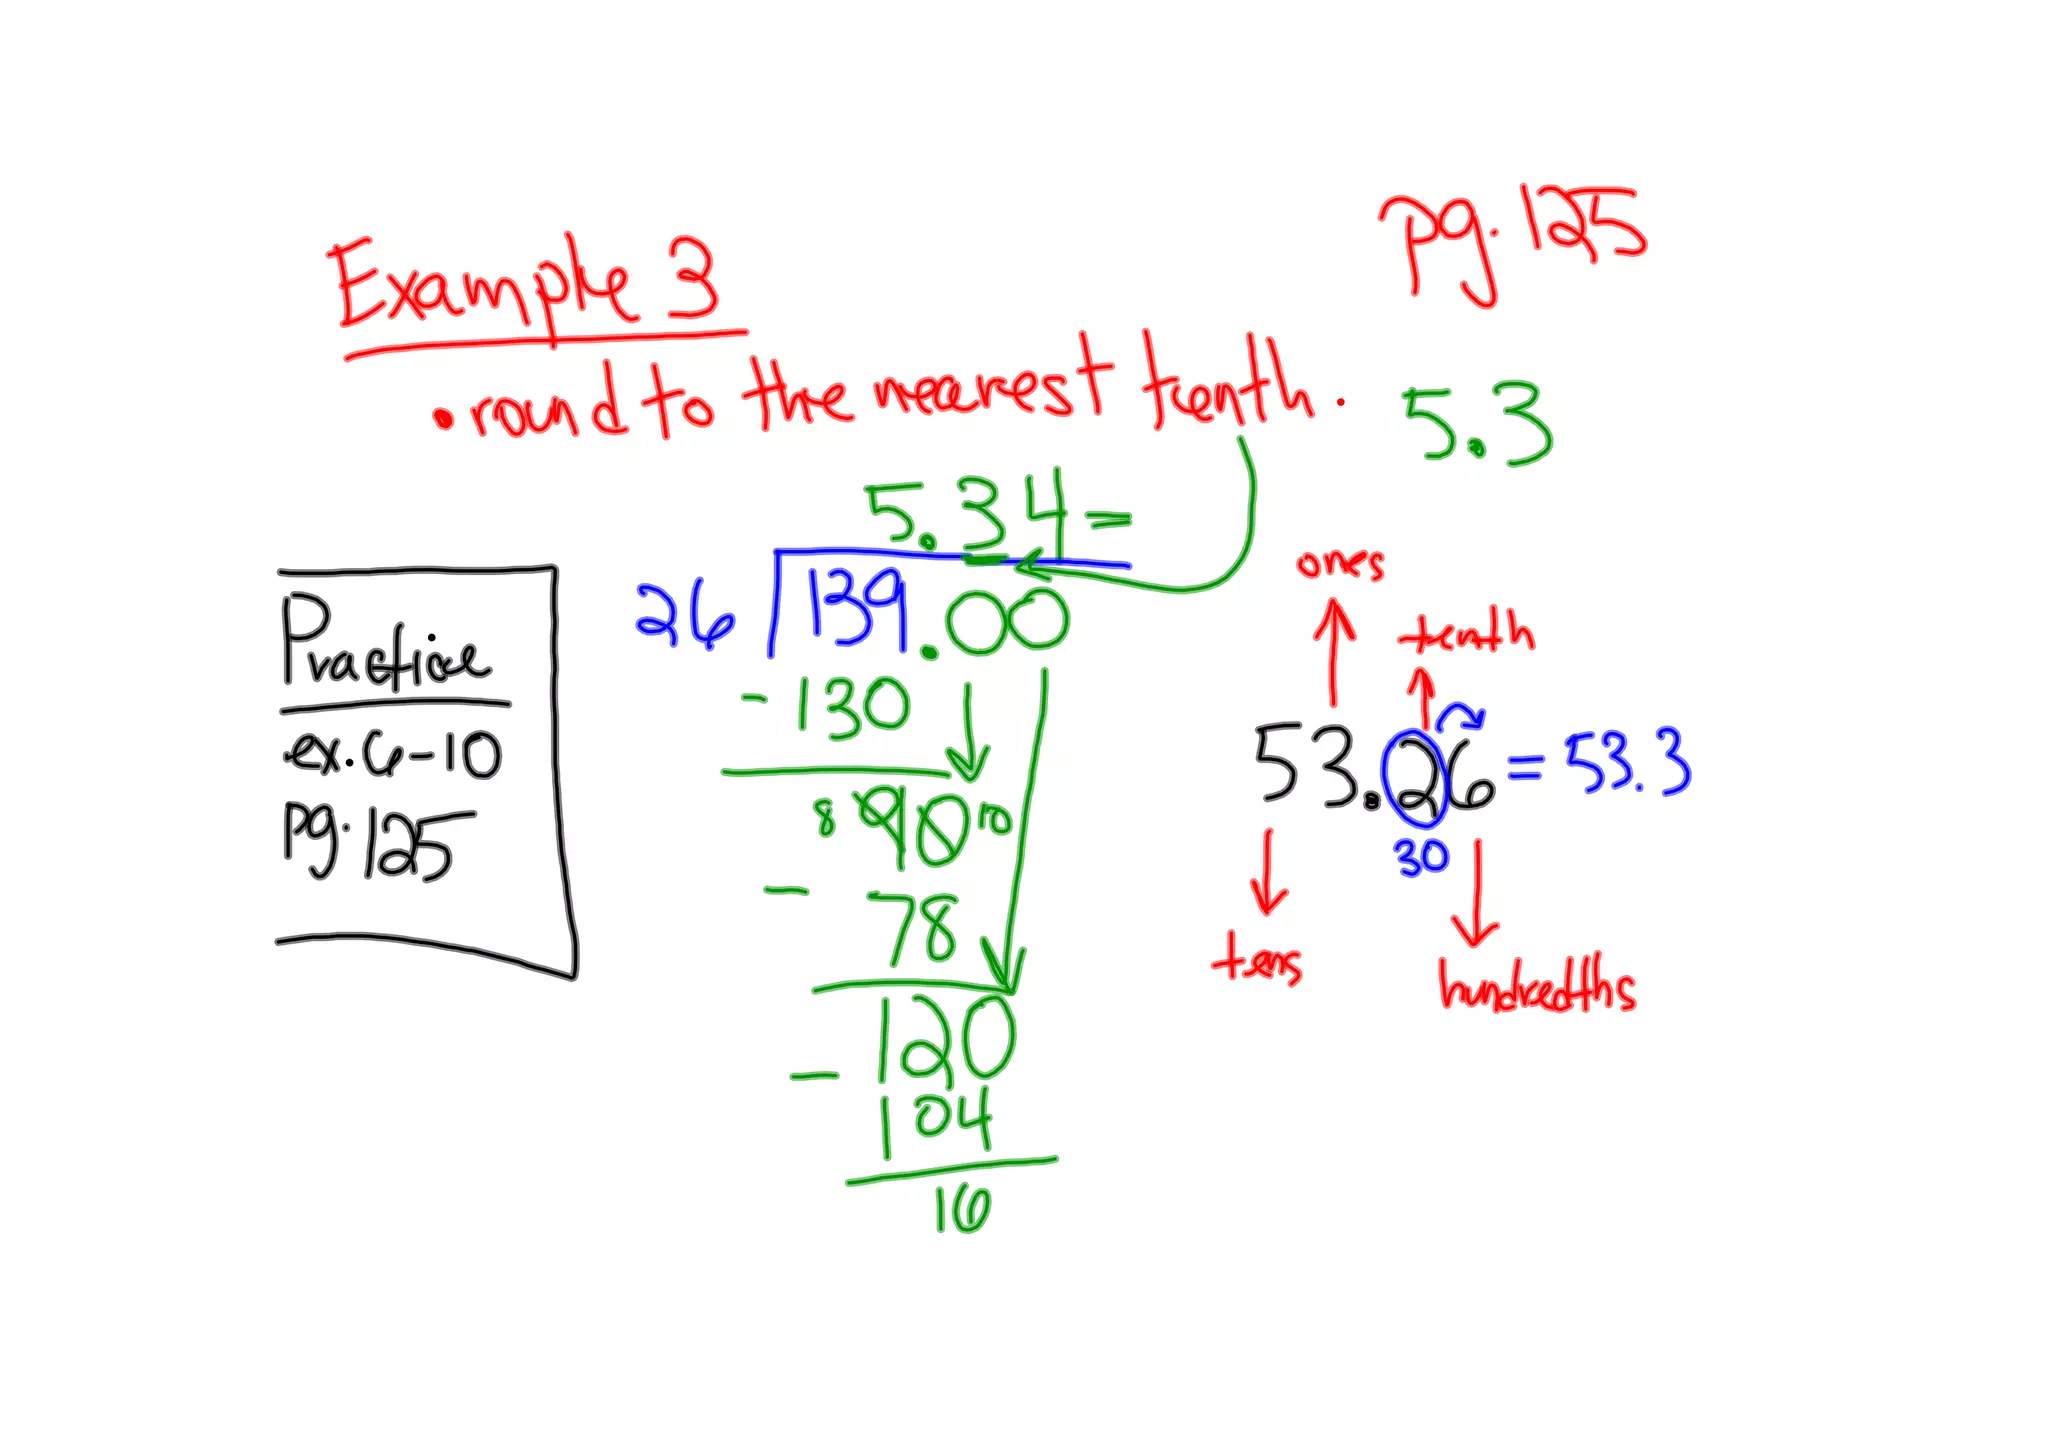 pg. 125
Example 3
• round to the nearest tenth.
5.3
5.34=
26 139.00
- 130
8 90 10
- 78
120
- 104
16
Practice
ex. 6-10
pg. 125
ones
tenth
53.26 = 53.3
30
tens
hundredths